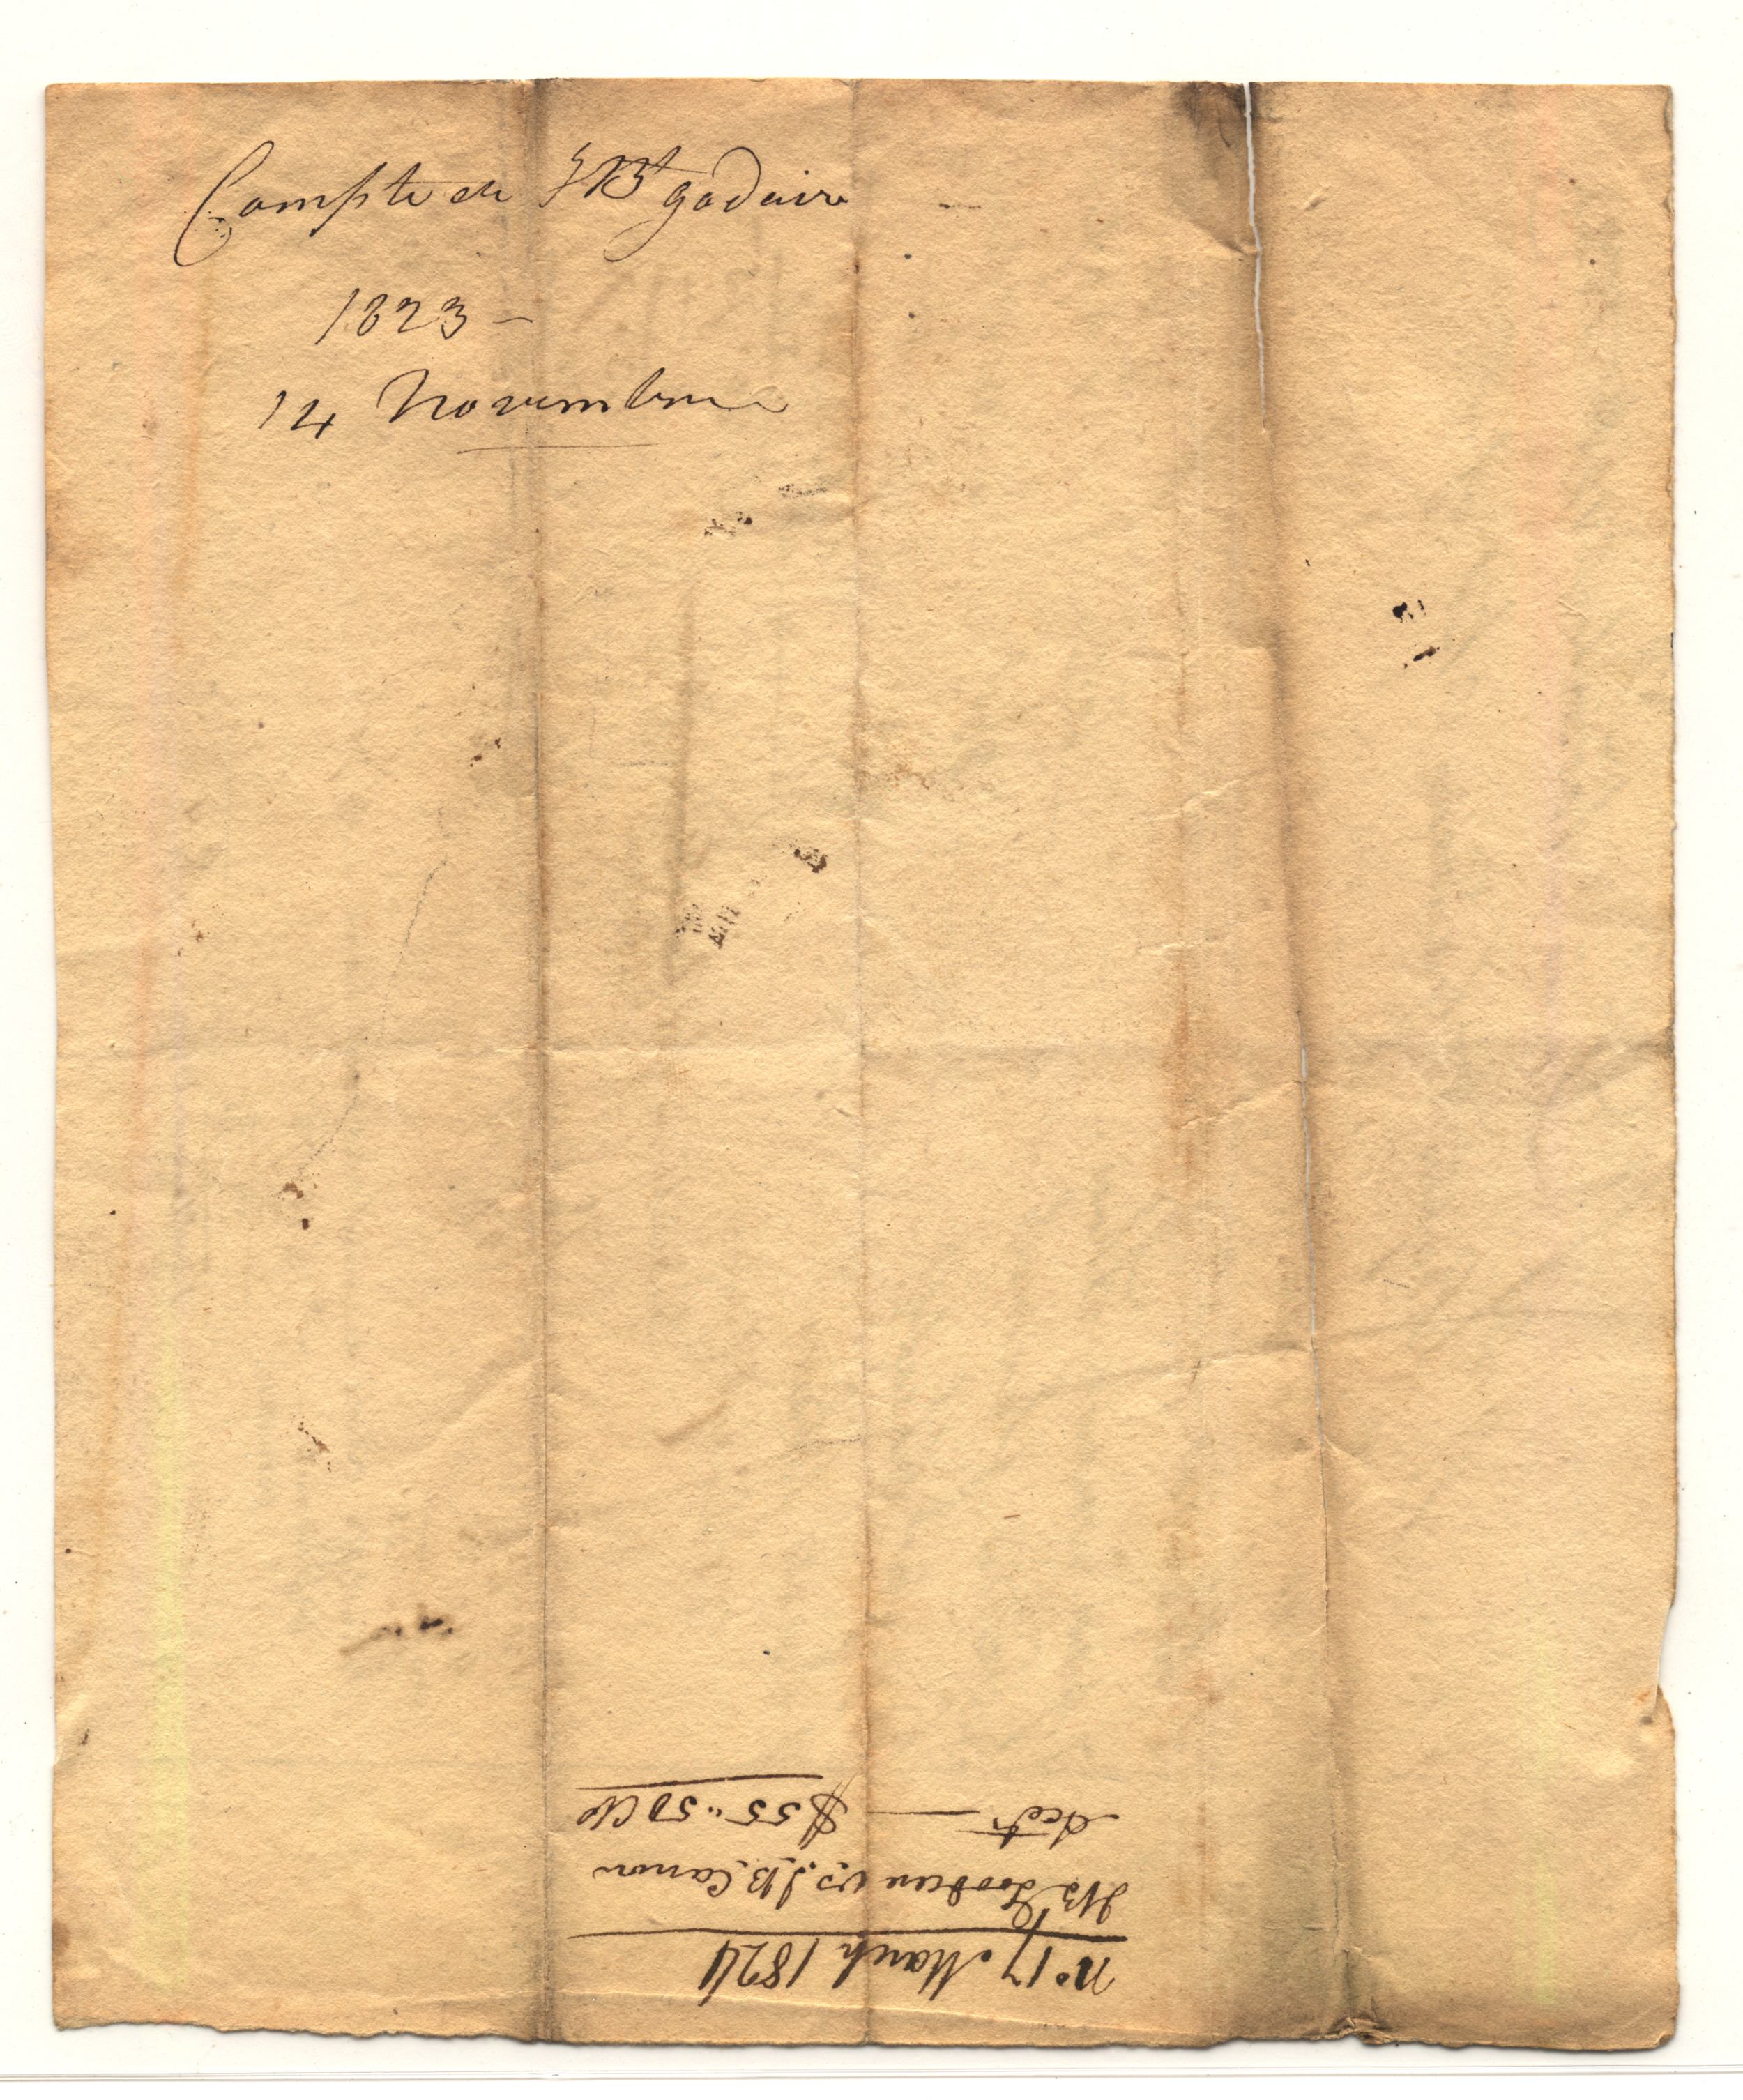 Compte de JBt godaire
1823 —
14 Novembre
No 17 March 1824
JBt Goodeau vs J.B. Caron
Acct — $55 " 50 Cts